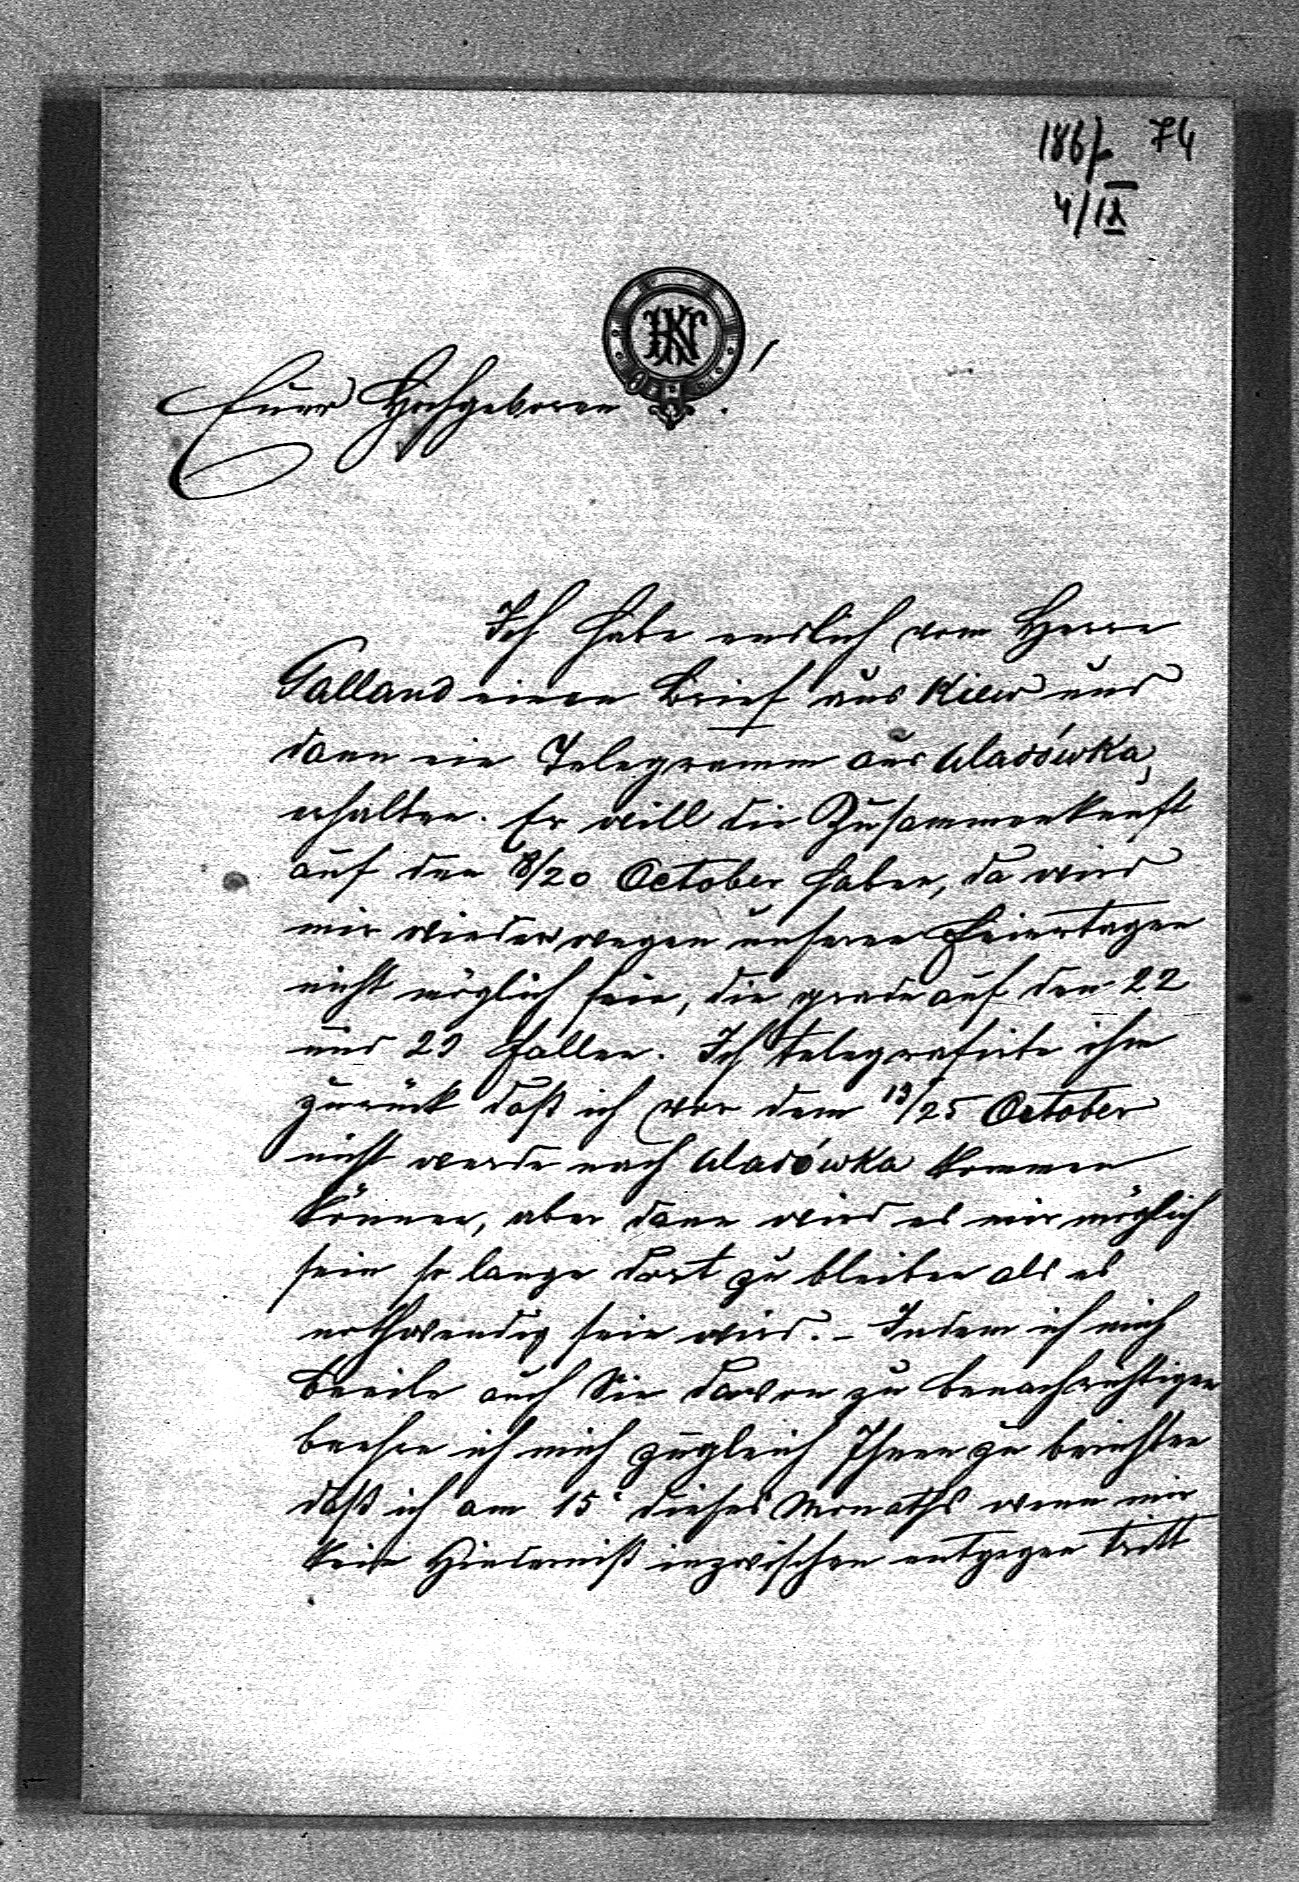 1867 74
4/IX
HKN
Euer Hochgeboren!
Ich habe endlich vom Herrn
Galland einen Brief aus Kiew und
dann ein Telegramm aus Wladówka,
erhalten. Er will die Zusammenkunft
auf den 8/20 October haben, da wird
mir wieder wegen unseren Feiertagen
nicht möglich sein, die grade auf den 22
und 23 fallen. Ich telegrafirte ihm
zurück daß ich vor dem 13/25 October
nicht werde nach Wladówka kommen
können, aber dann wird es mir möglich
sein so lange dort zu bleiben als es
nothwendig sein wird. – Indem ich mich
beeile auch Sie davon zu benachrichtigen
beehre ich mich zugleich Ihnen zu berichten
daß ich am 15. dieses Monaths wenn mir
kein Hinderniß inzwischen entgegen tritt